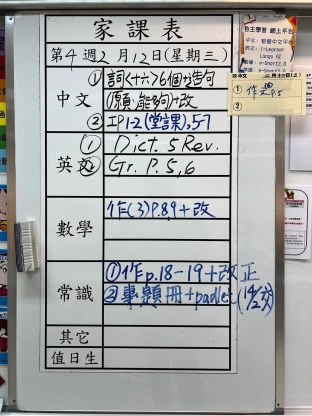 家課表
第4週2月12日(星期三)
中文
①詞<十六>6個+造句
(願‧能夠)+改
②IP1-2(堂課),5-7
英文
①Dict. 5 Rev.
②Gr. P. 5, 6
數學
作(3)P.8,9+改
常識
①作p.18-19+改正
②專題冊+padlet(19/2交)
其它
值日生
自主學習 網上平台
①作文P.5
②